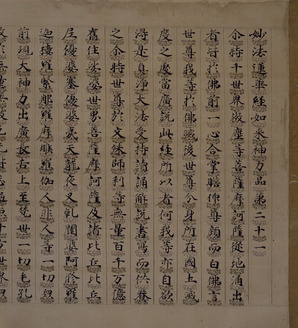 妙法蓮華經如來神力品第二十一
尒時千世界微塵等菩薩摩訶薩從地涌出
者皆於佛前一心合掌瞻仰尊顏而白佛言
世尊我等於佛滅後世尊分身所在國土滅
度之處當廣說此經所以者何我等亦自欲
得是真淨大法受持讀誦解說書寫而供養
之尒時世尊於文殊師利等無量百千萬億
舊住娑婆世界菩薩摩訶薩及諸比丘比丘
尼優婆塞優婆夷天龍夜叉乾闥婆阿脩羅
迦樓羅緊那羅摩睺羅伽人非人等一切眾
前現大神力出廣長舌上至梵世一切毛孔